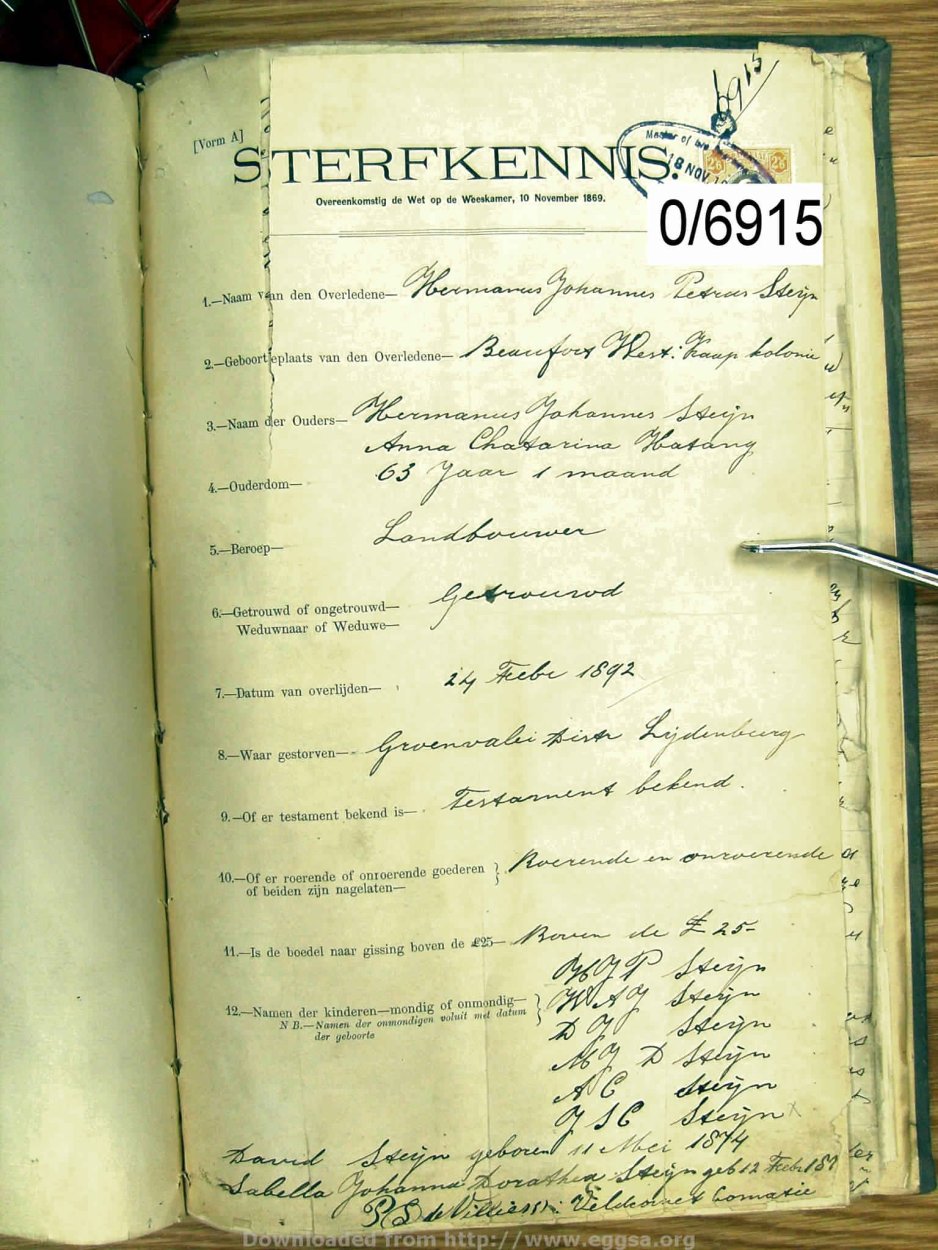 6915
[Vorm A]
STERFKENNIS.
Master of the
18 NOV. 
2/6 2/6
Overeenkomstig de Wet op de Weeskamer, 10 November 1869.
0/6915
1.—Naam van den Overledene— Hermanus Johannes Petrus Steijn
2.—Geboorteplaats van den Overledene— Beaufort West: Kaap kolonie
3.—Naam der Ouders— Hermanus Johannes Steijn
Anna Chatarina
4.—Ouderdom— 63 Jaar 1 maand
5.—Beroep— Landbouwer
6.—Getrouwd of ongetrouwd— Getrouwd
Weduwnaar of Weduwe—
7.—Datum van overlijden— 24 Feebr 1892
8.—Waar gestorven— Groenvalei Distr Lijdenburg
9.—Of er testament bekend is— Testament bekend.
10.—Of er roerende of onroerende goederen } Roerende en onroerende
of beiden zijn nagelaten—
11.—Is de boedel naar gissing boven de £25— Boven de £ 25-
H J P Steijn
12.—Namen der kinderen—mondig of onmondig— } W A J Steijn
N B.—Namen der onmondigen voluit met datum D J Steijn
der geboorte
M J D Steijn
A C Steijn
J S C Steijn
David Steijn geboren 11 Mei 1874
Sabella Johanna Dorathea Steijn geb 12 Feebr
P S de Villiers Veldcornet Comatie
Downloaded from http://www.eggsa.org